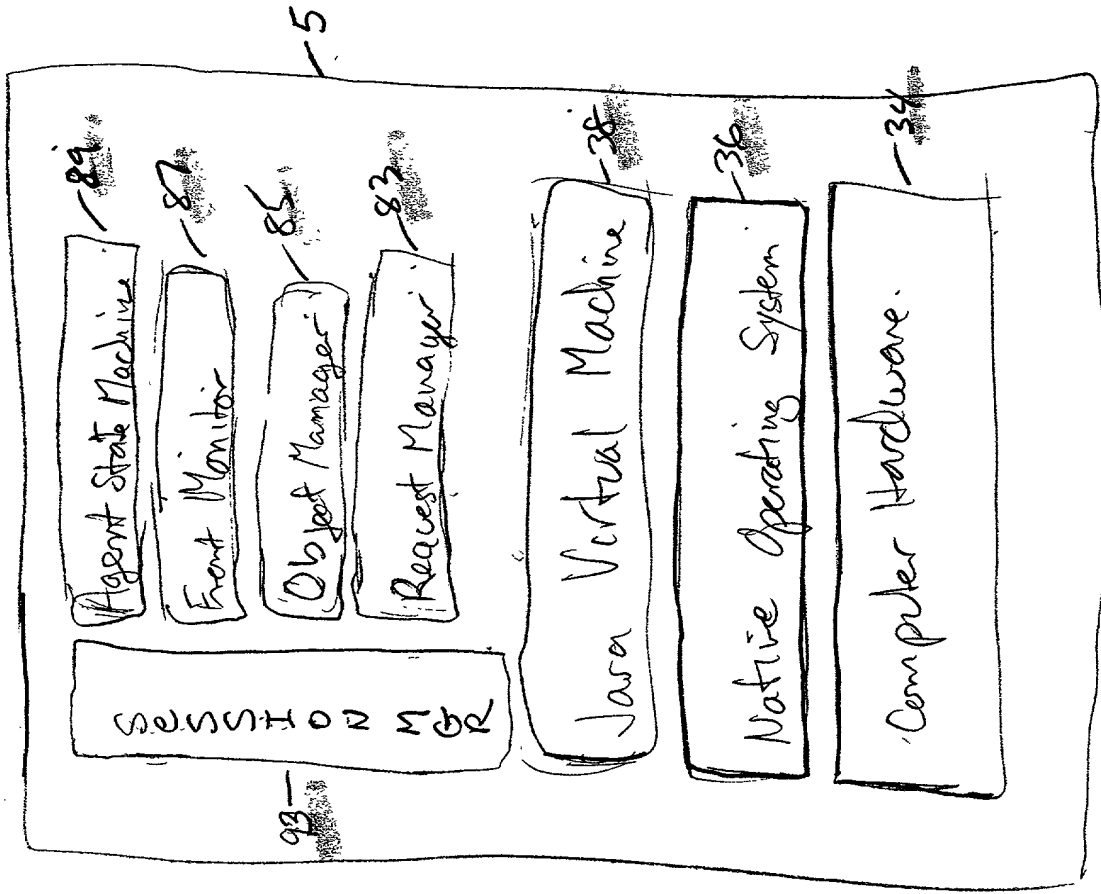 5
Agent State Machine 89
Event Monitor 87
Object Manager 85
Request Manager 83
SESSION MGR
93
Java Virtual Machine 38
Native Operating System 36
Computer Hardware. 34